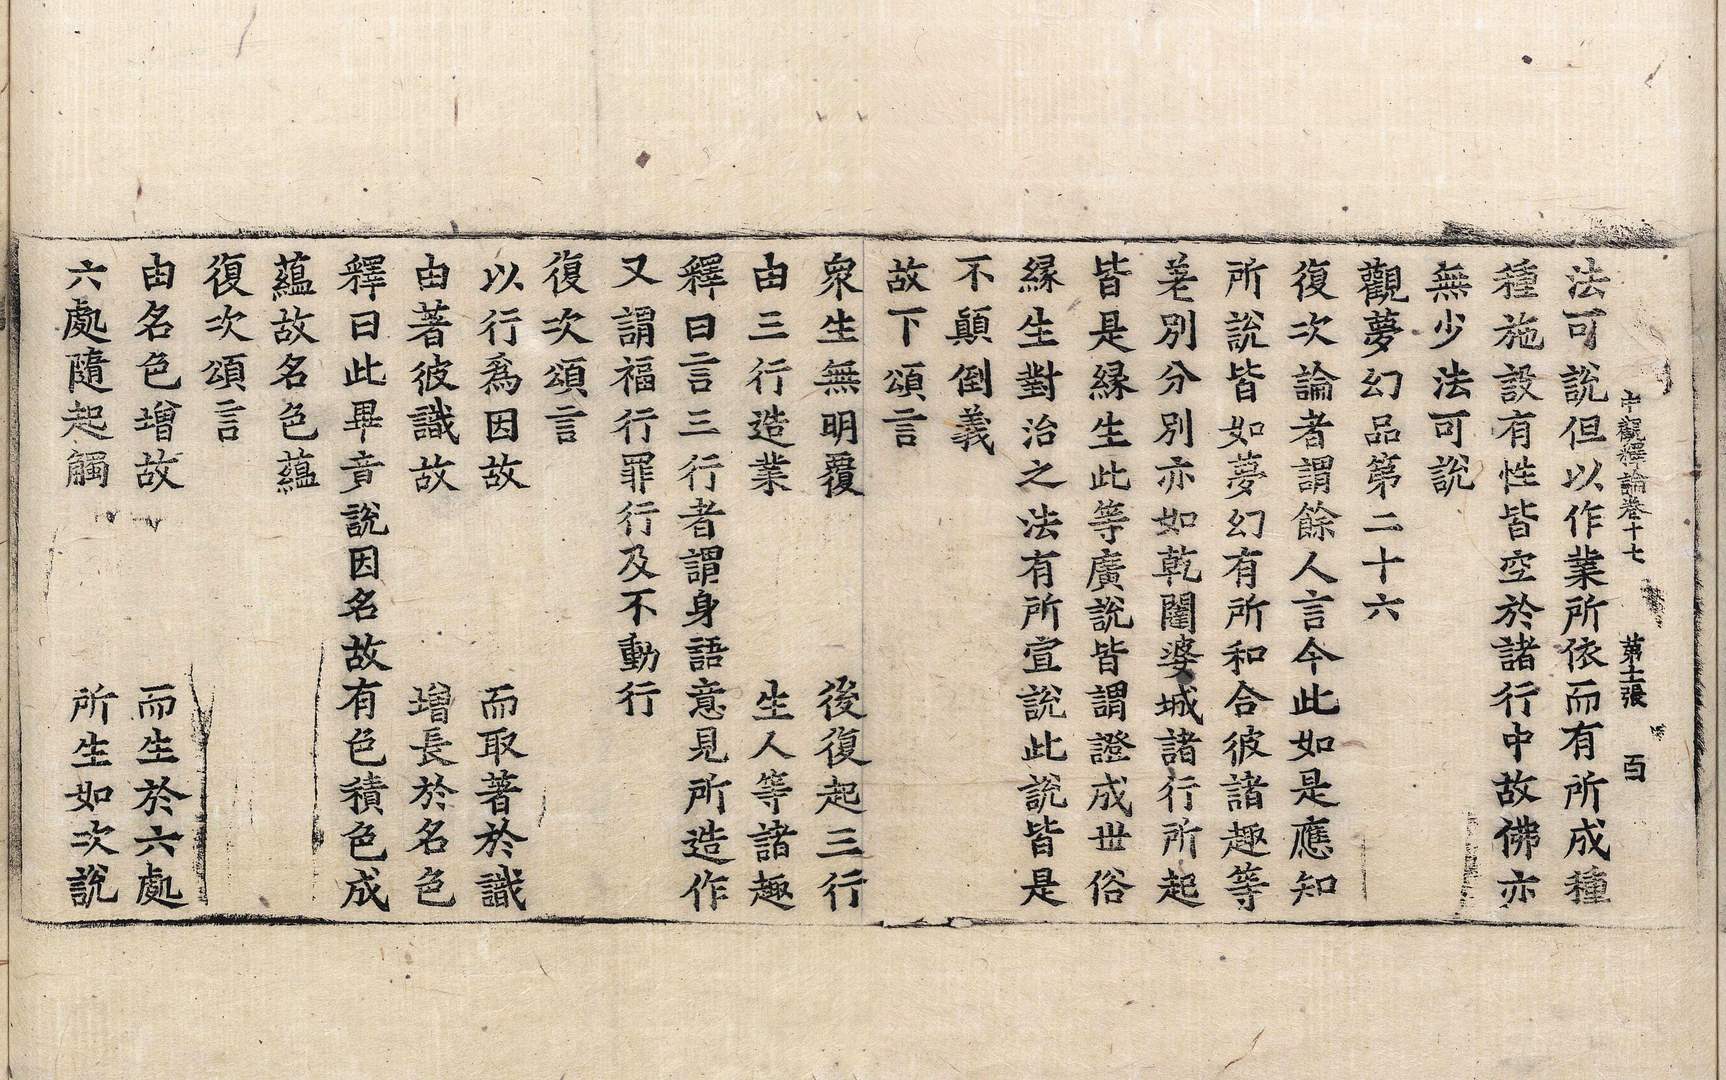 中觀釋論卷十七 第十二張 百
法可說但以作業所依而有所成種
種施設有性皆空於諸行中故佛亦
無少法可說
觀夢幻品第二十六
復次論者謂餘人言今此如是應知
所說皆如夢幻有所和合彼諸趣等
差別分別亦如乾闥婆城諸行所起
皆是緣生此等廣說皆謂證成世俗
緣生對治之法有所宣說此說皆是
不顛倒義
故下頌言
衆生無明覆 後復起三行
由三行造業 生人等諸趣
釋曰言三行者謂身語意見所造作
又謂福行罪行及不動行
復次頌言
以行爲因故 而取著於識
由著彼識故 增長於名色
釋曰此畢竟說因名故有色積色成
蘊故名色蘊
復次頌言
由名色增故 而生於六處
六處隨起觸 所生如次說